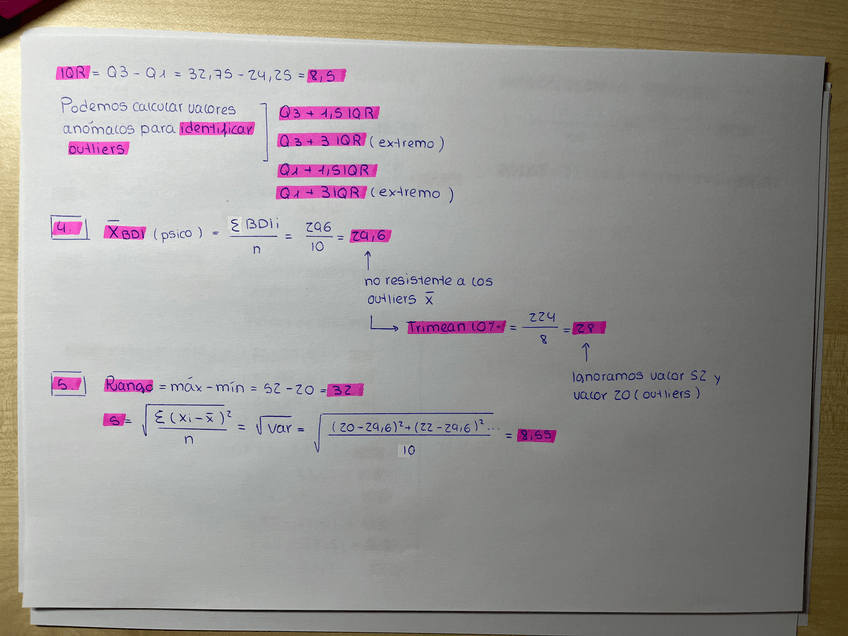 IQR = Q3 - Q1 = 32,75 - 24,25 = 8,5
Podemos calcular valores
anómalos para identificar
outliers
Q3 + 1,5 IQR
Q3 + 3 IQR (extremo)
Q1 + 1,5 IQR
Q1 + 3 IQR (extremo)
4. X̄ BDI (psico) = Σ BDIi / n = 296 / 10 = 29,6
↑
no resistente a los
outliers x̄
→ Trimean 10% = 224 / 8 = 28
↑
Ignoramos valor 52 y
valor 20 (outliers)
5. Rango = máx - mín = 52 - 20 = 32
S = √(Σ (xi - x̄)² / n) = √var = √((20 - 29,6)² + (22 - 29,6)² ... / 10) = 8,55